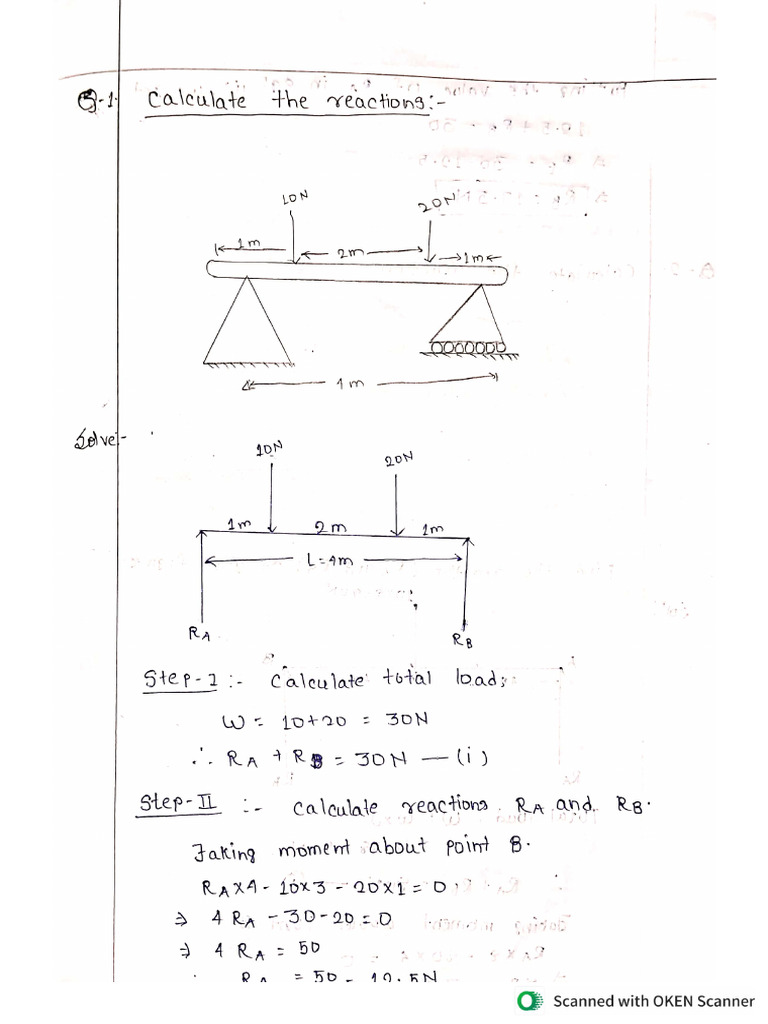 Q-1. Calculate the reactions:-
10N
20N
1m
2m
1m
4m
Solve:-
10N
20N
1m 2m 1m
L=4m
RA
RB
Step-I :- Calculate total load:
W = 10+20 = 30N
∴ RA + RB = 30N — (i)
Step-II :- Calculate reactions RA and RB.
Taking moment about point B.
RA×4 - 10×3 - 20×1 = 0
⇒ 4 RA - 30 - 20 = 0
⇒ 4 RA = 50
RA = 50 = 12.5N
Scanned with OKEN Scanner